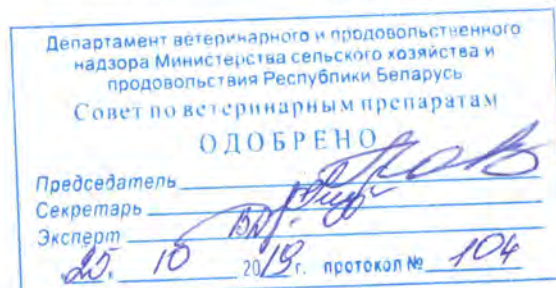 Департамент ветеринарного и продовольственного
надзора Министерства сельского хозяйства и
продовольствия Республики Беларусь
Совет по ветеринарным препаратам
ОДОБРЕНО
Председатель
Секретарь
Эксперт
25 10 2019 г. протокол № 104